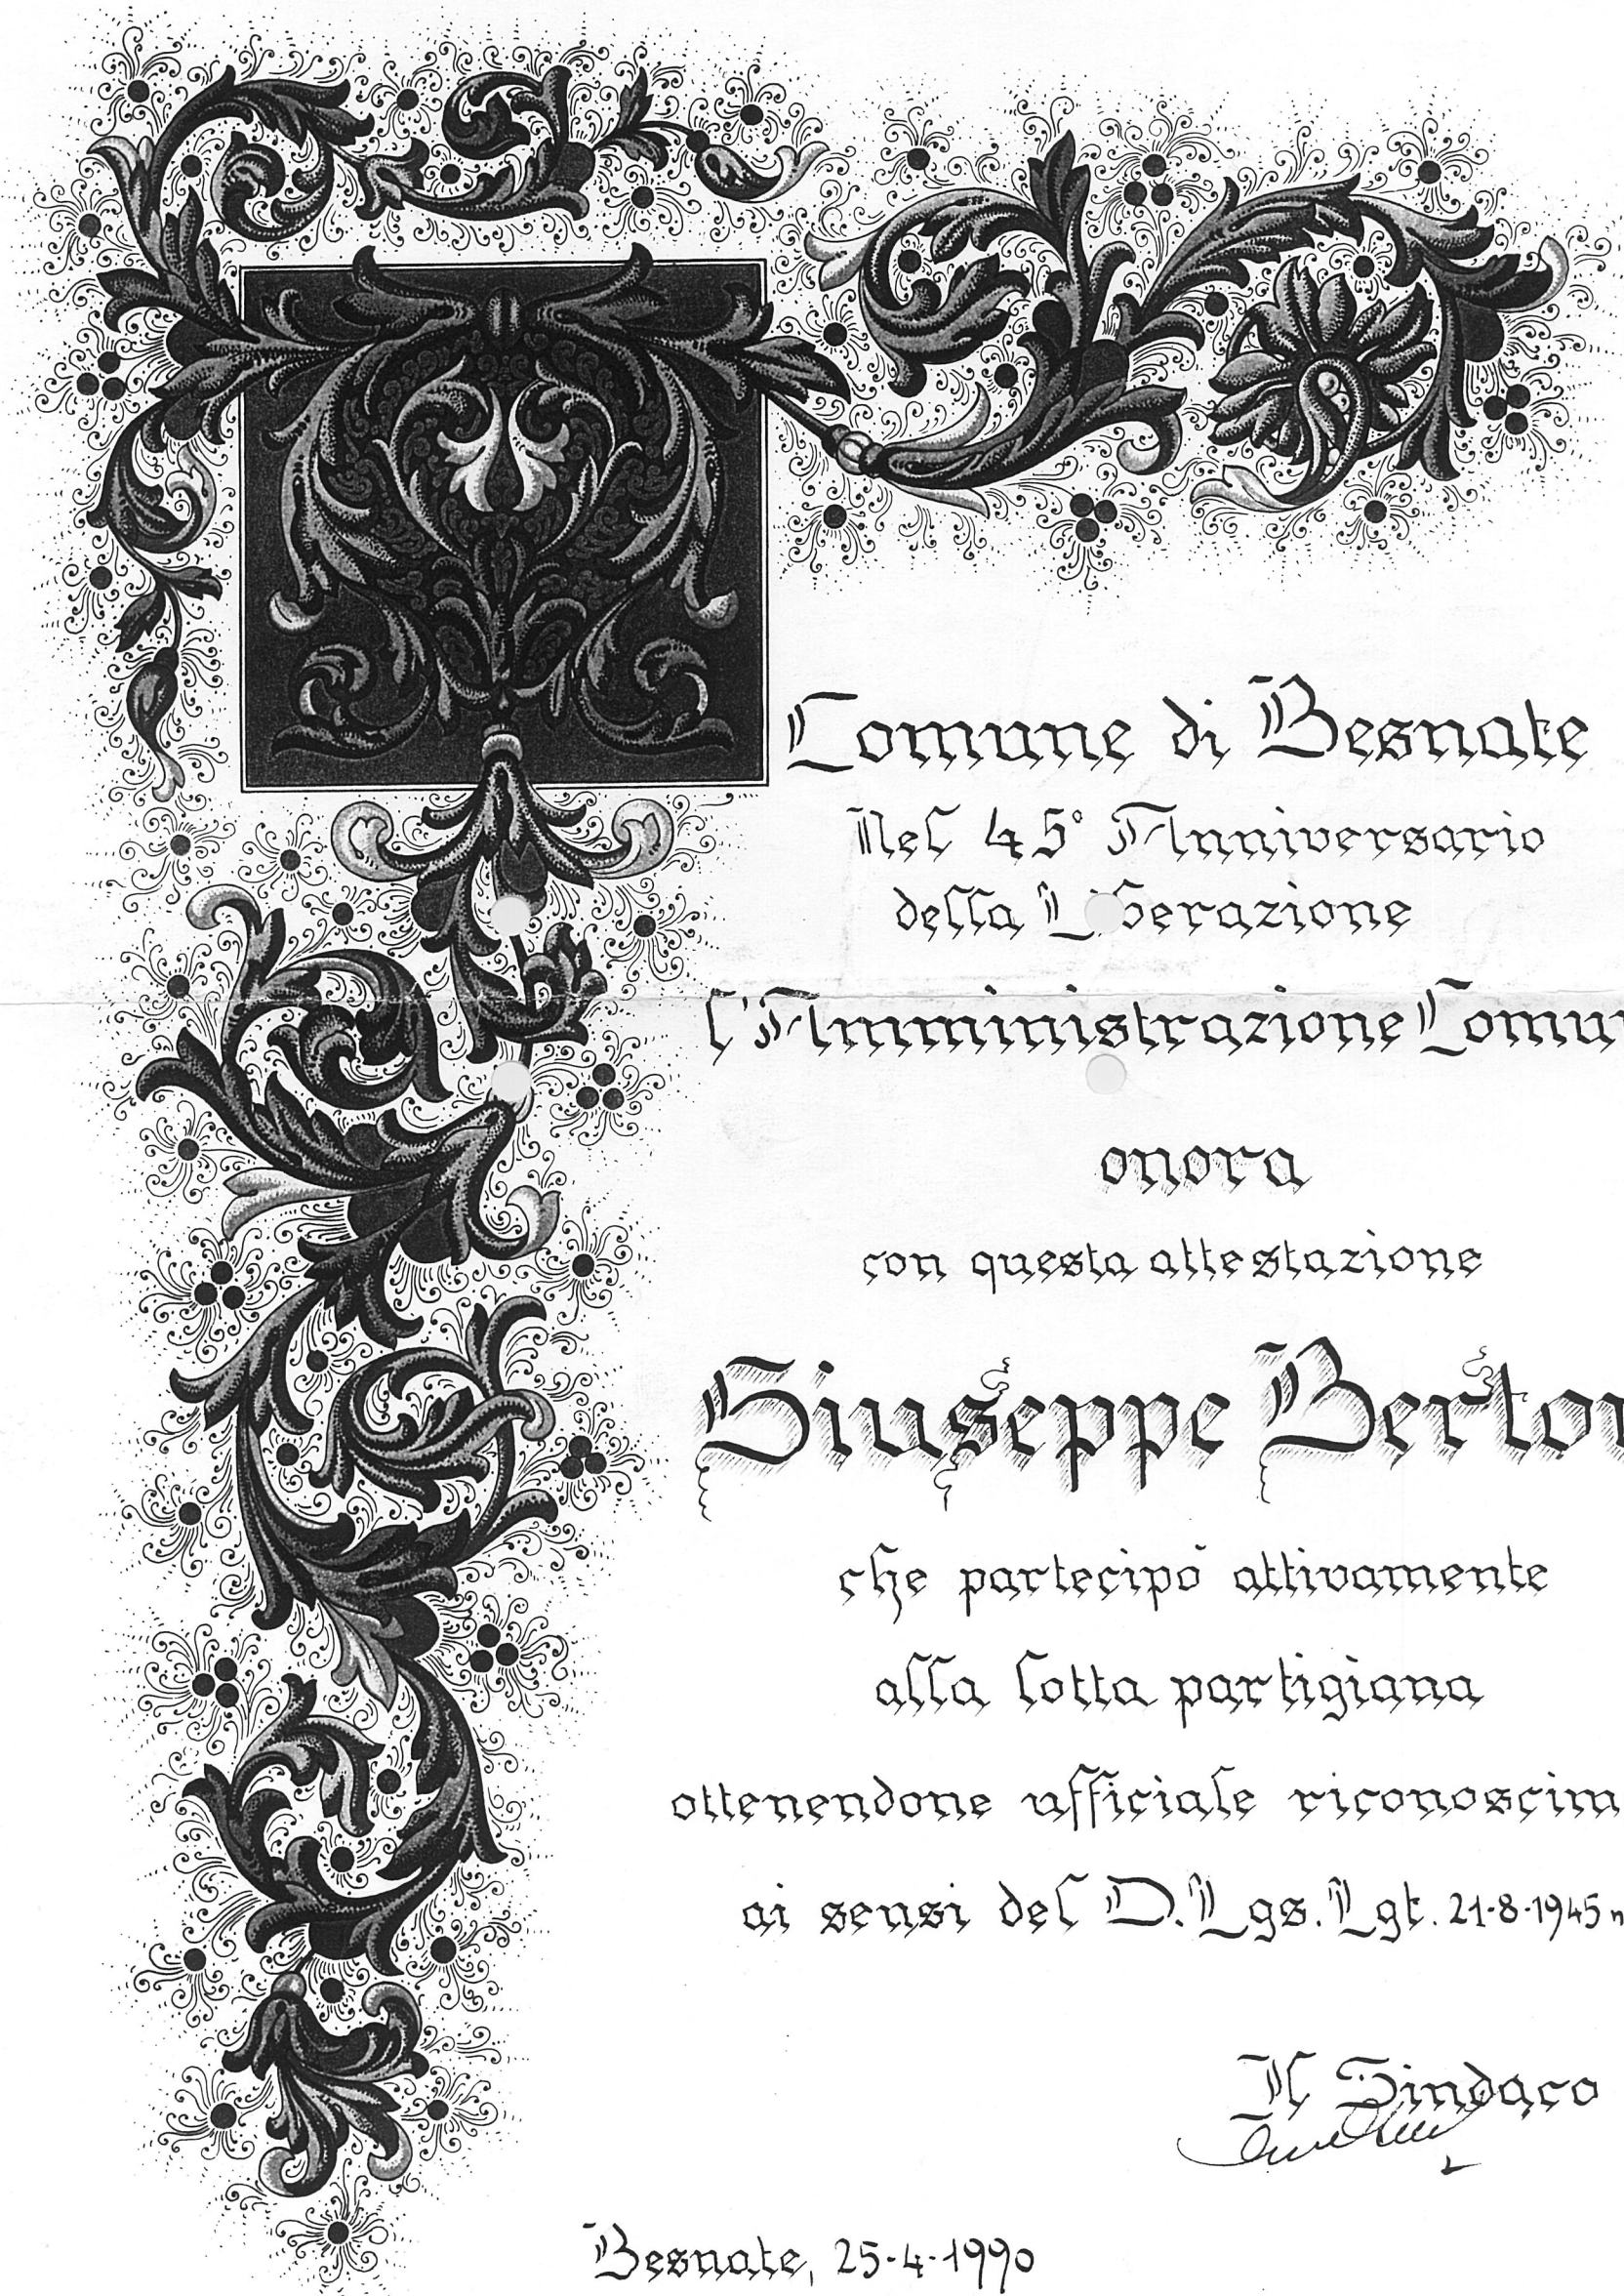 Comune di Besnate
Nel 45° Anniversario
della Liberazione
l'Amministrazione Comu
onora
con questa attestazione
Giuseppe Berton
che partecipò attivamente
alla lotta partigiana
ottenendone ufficiale riconoscim
ai sensi del D. Lgs. Lgt. 21-8-1945 n
Il Sindaco
Besnate, 25-4-1990